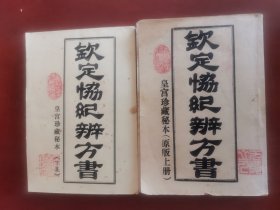 欽定協紀辨方書
皇宮珍藏秘本（下集）
欽定協紀辨方書
皇宮珍藏秘本（原版上册）